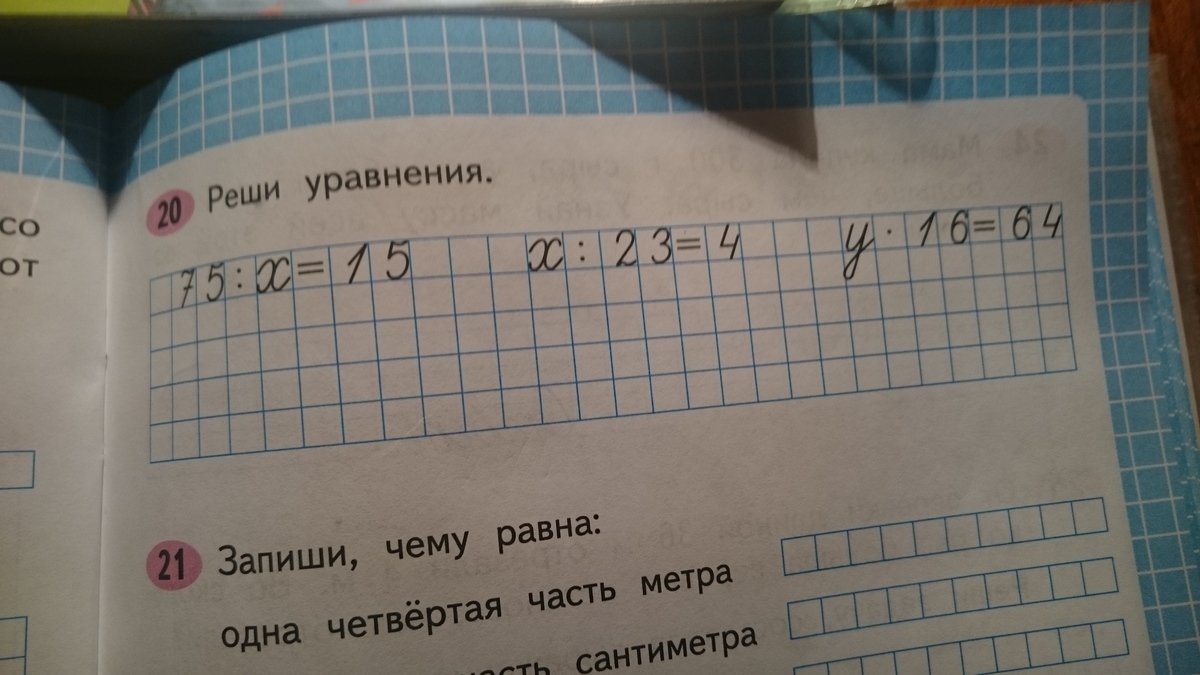 со
от
20 Реши уравнения.
75 : x = 15 x : 23 = 4 y · 16 = 64
21 Запиши, чему равна:
одна четвёртая часть метра
сантиметра